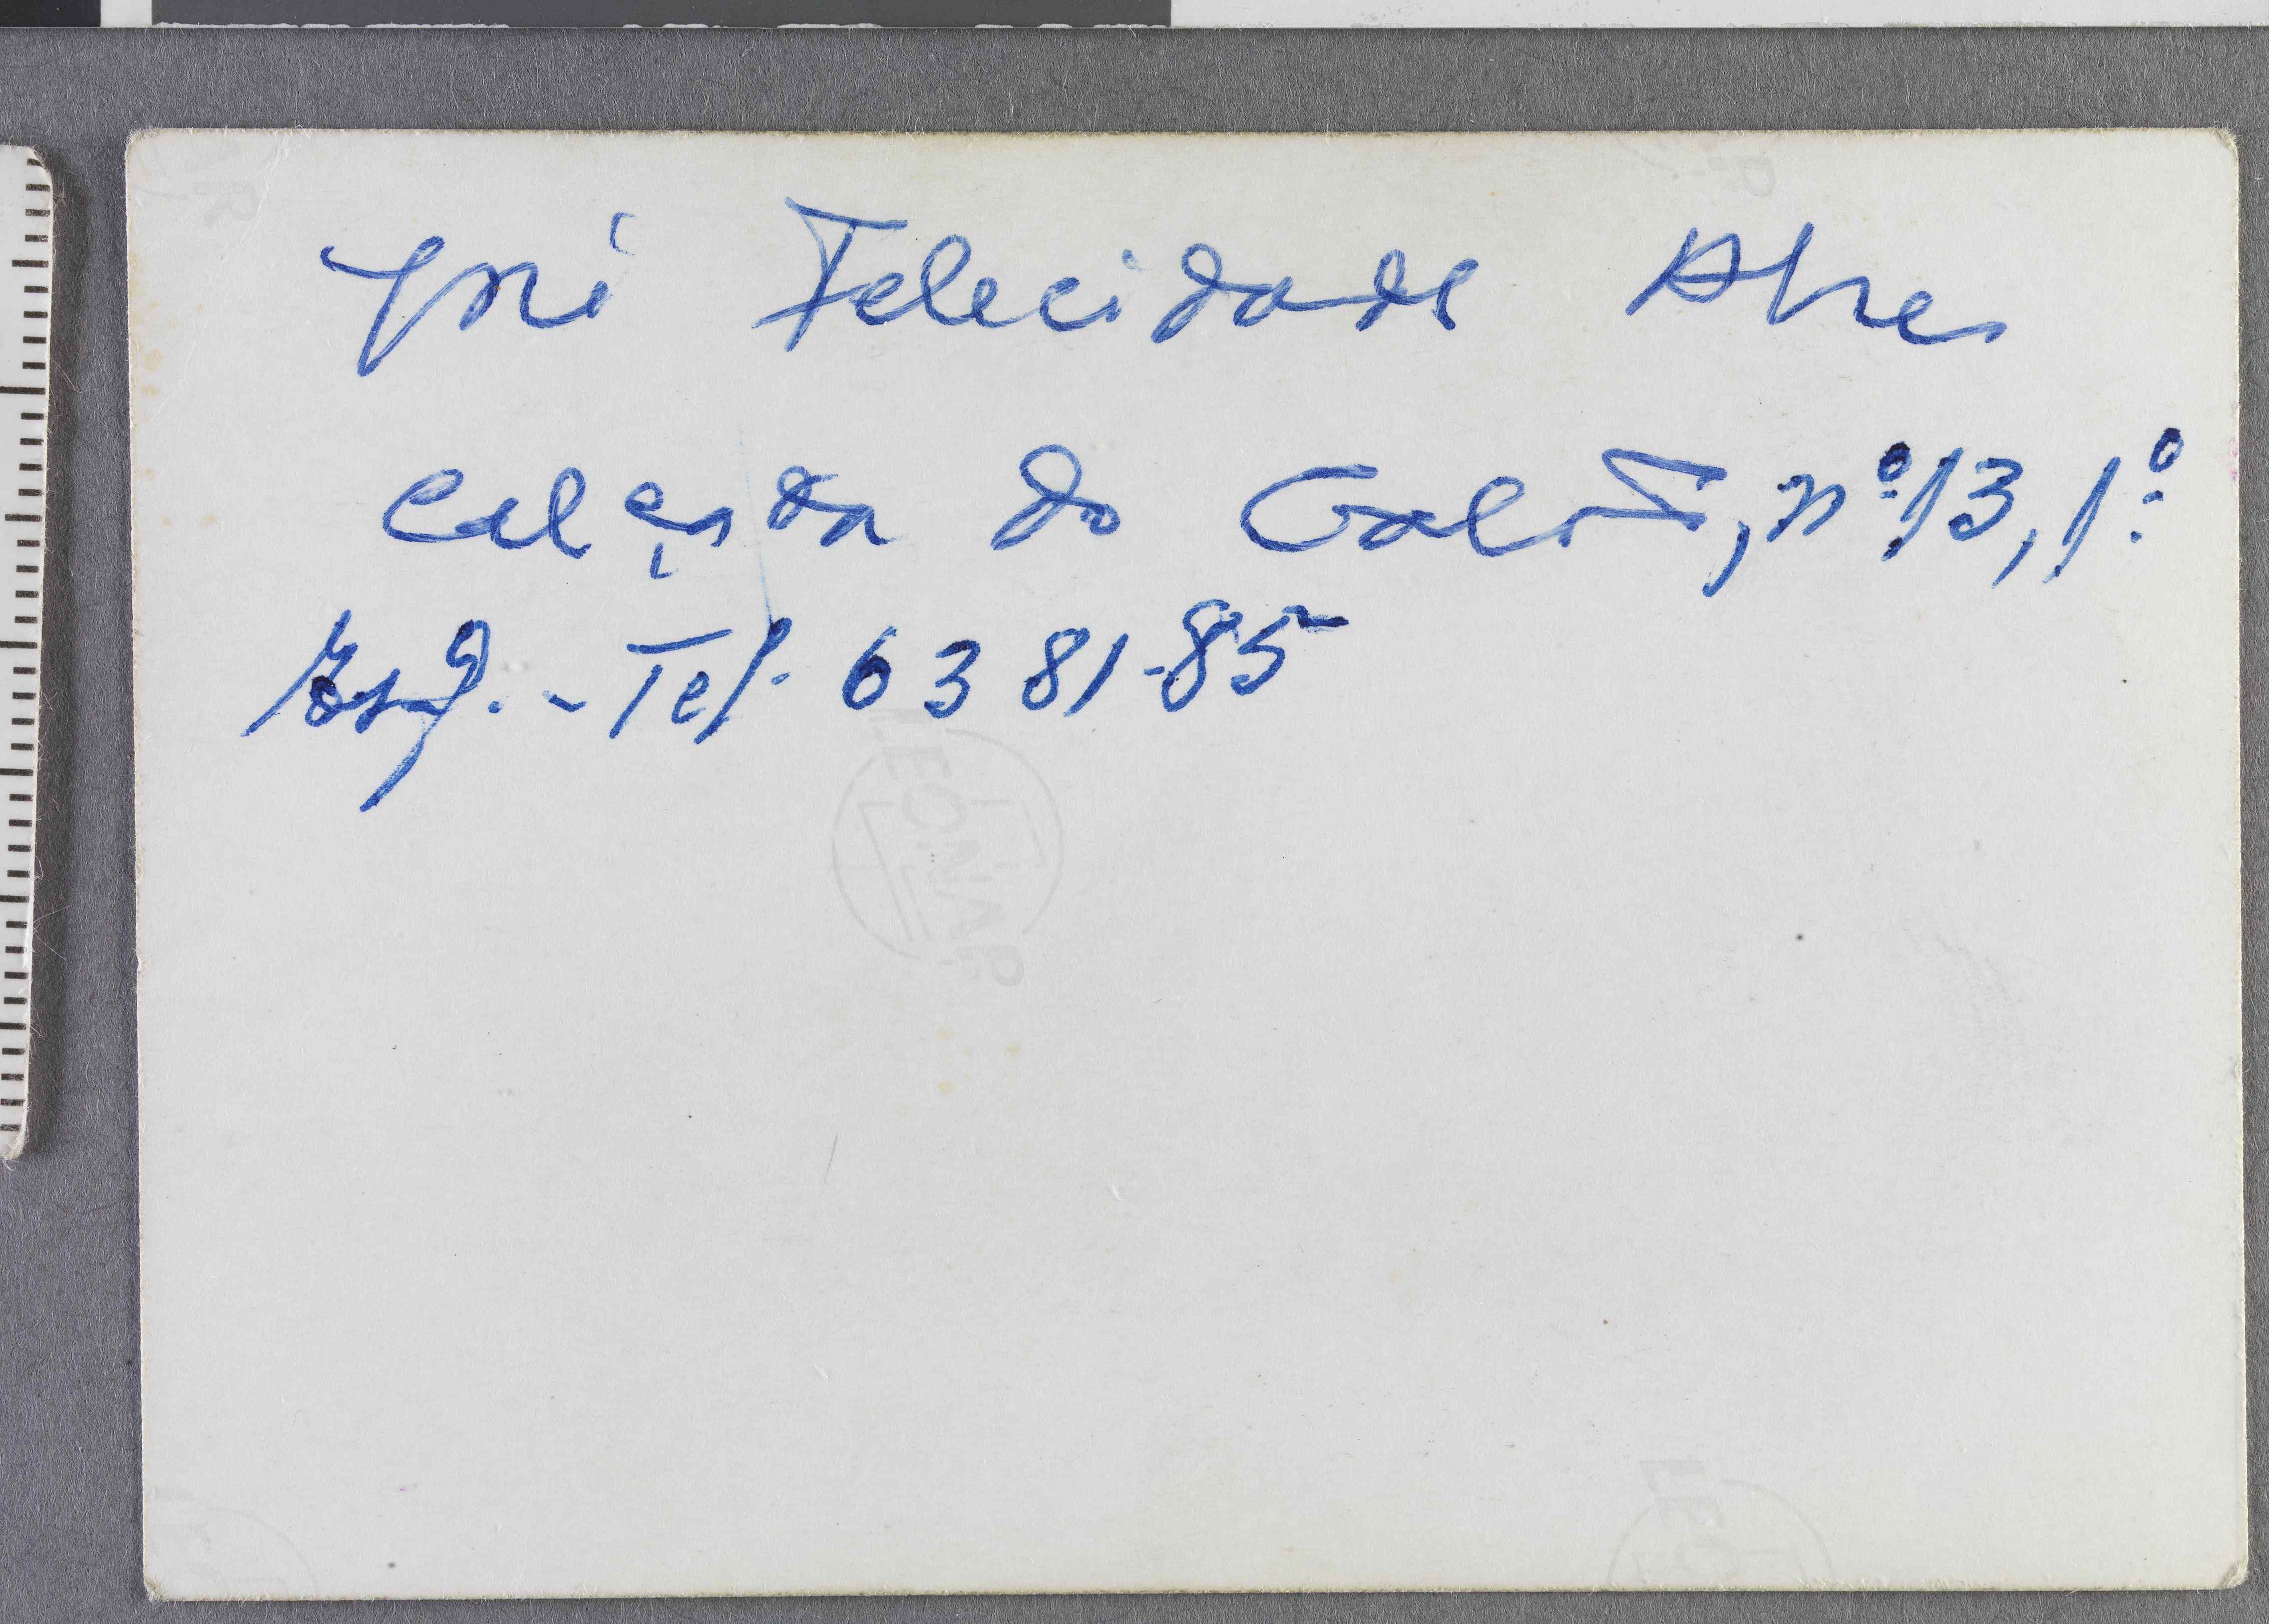 José Felicidade Alves
Calçada do Galvão, nº 13, 1º
Esq. - Tel. 63 81 85
LEONAR